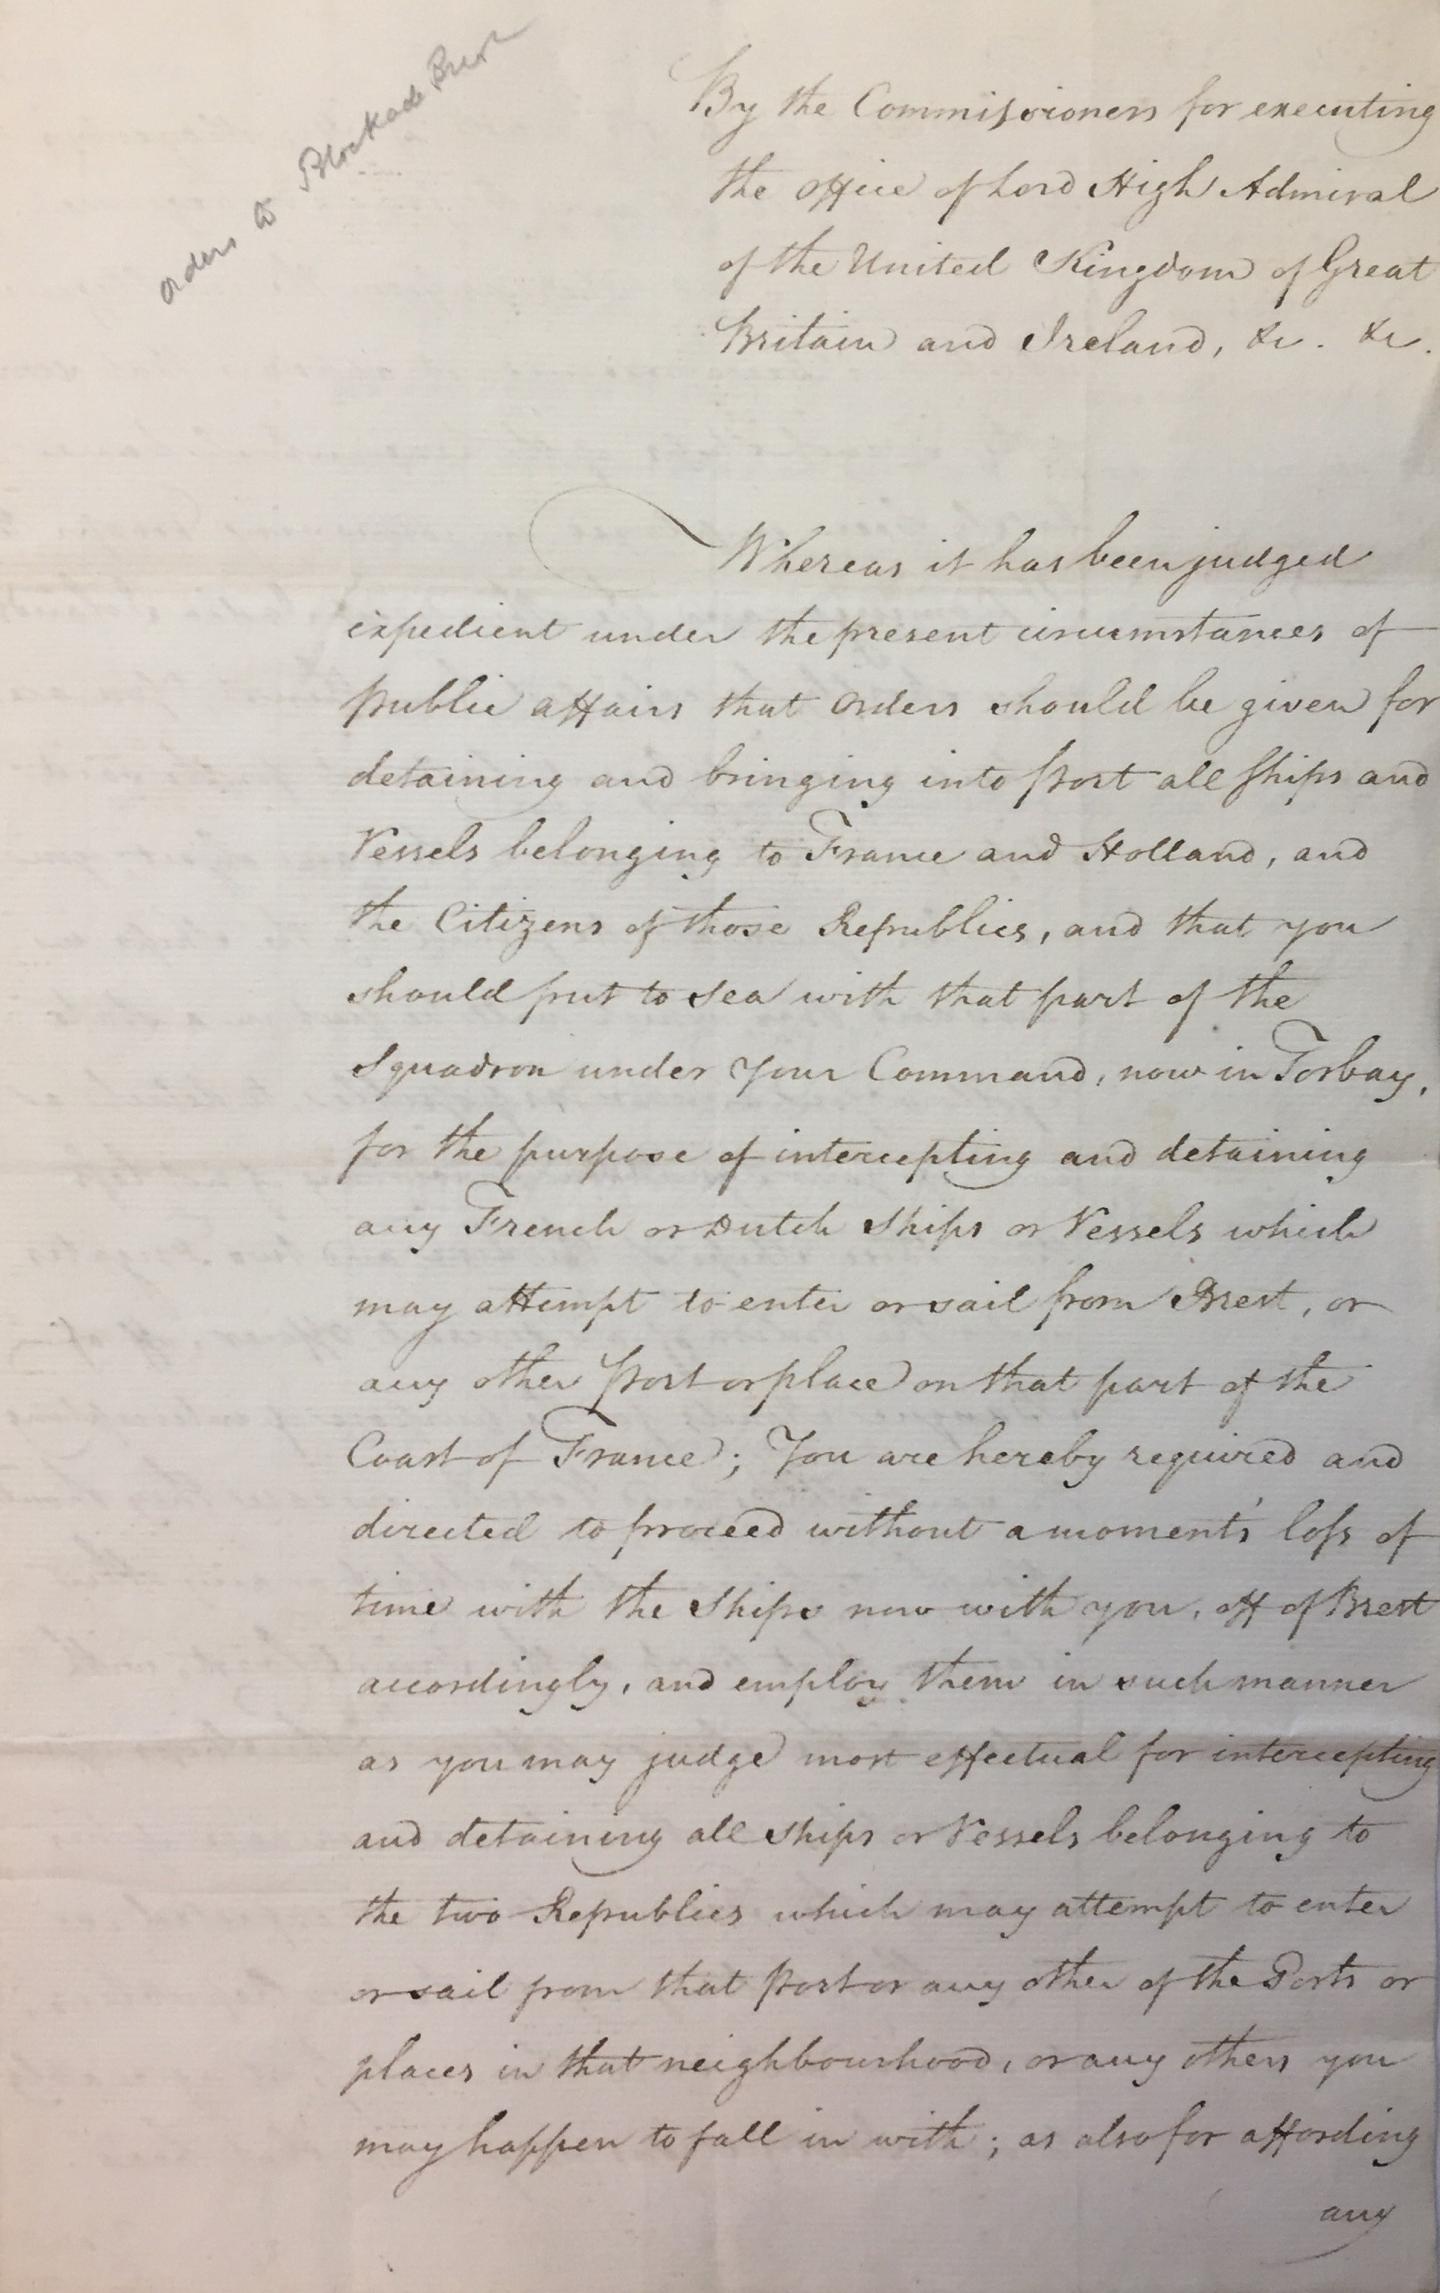 orders to Blockade Brest
By the Commissioners for executing
the office of Lord High Admiral
of the United Kingdom of Great
Britain and Ireland, &c. &c.
Whereas it has been judged
expedient under the present circumstances of
public affairs that Orders should be given for
detaining and bringing into Port all Ships and
Vessels belonging to France and Holland, and
the Citizens of those Republics, and that you
should put to Sea with that part of the
Squadron under Your Command, now in Torbay,
for the purpose of intercepting and detaining
any French or Dutch Ships or Vessels which
may attempt to enter or sail from Brest, or
any other Port or place on that part of the
Coast of France; You are hereby required and
directed to proceed without a moment's loss of
time with the Ships now with you, off of Brest
accordingly, and employ them in such manner
as you may judge most effectual for intercepting
and detaining all Ships or Vessels belonging to
the two Republics which may attempt to enter
or sail from that Port or any other of the Ports or
places in that neighbourhood, or any others you
may happen to fall in with; as also for affording
any